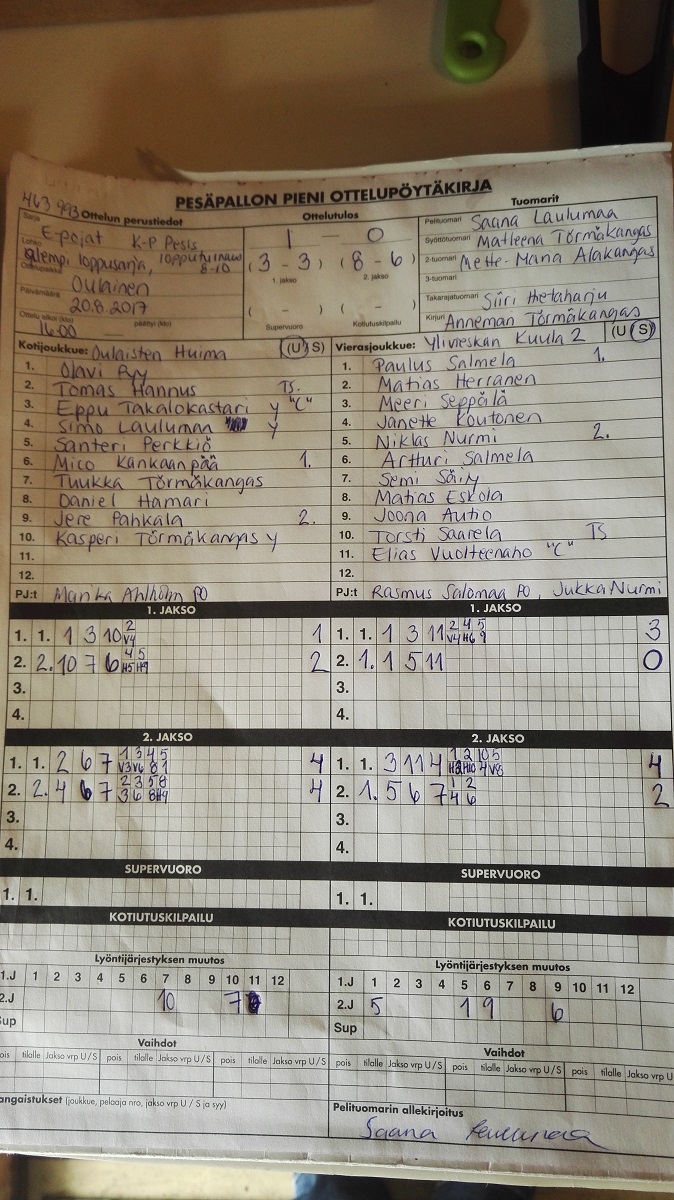 PESÄPALLON PIENI OTTELUPÖYTÄKIRJA
463 993 Ottelun perustiedot
Sarja E-pojat K-P Pesis
Lohko alempi loppusarja, lopputurnaus 8-10
Oulainen
Päivämäärä 20.8.2017
Ottelu alkoi (klo) 16.00 päättyi (klo)
Ottelutulos
1 — 0
(3 - 3) (8 - 6)
1. jakso 2. jakso
( - ) ( - )
Supervuoro Kotiutuskilpailu
Tuomarit
Pelituomari Saana Laulumaa
Syöttötuomari Matleena Törmäkangas
2-tuomari Mette-Maria Alakangas
3-tuomari
Takarajatuomari Siiri Hietaharju
Kirjuri Annemari Törmäkangas
Kotijoukkue: Oulaisten Huima (U S)
1. Olavi Ry
2. Tomas Hannus TS.
3. Eppu Takalokastari y "C"
4. Simo Laulumaa y
5. Santeri Perkkiö
6. Mico Kankaanpää 1.
7. Tuukka Törmäkangas
8. Daniel Hamari
9. Jere Pahkala 2.
10. Kasperi Törmäkangas y
11.
12.
PJ:t Marika Ahlholm PO
Vierasjoukkue: Ylivieskan Kuula 2 (U S)
1. Paulus Salmela 1.
2. Matias Herranen
3. Meeri Seppälä
4. Janette Koutonen
5. Niklas Nurmi 2.
6. Artturi Salmela
7. Semi Säily
8. Matias Eskola
9. Joona Autio
10. Torsti Saarela TS
11. Elias Vuolteenaho "C"
12.
PJ:t Rasmus Salomaa PO, Jukka Nurmi
1. JAKSO
1. 1. 1 3 10 2 V4 1
2. 2. 10 7 6 4 5 H5 H9 2
3.
4.
1. JAKSO
1. 1. 1 3 11 2 4 5 V4 H6 9 3
2. 1. 1 5 11 0
3.
4.
2. JAKSO
1. 1. 2 6 7 1 3 4 5 V3 V6 8 1 4
2. 2. 4 6 7 2 3 5 8 3 6 8 H9 4
3.
4.
2. JAKSO
1. 1. 3 11 4 1 2 10 5 H2 H10 4 V8 4
2. 1. 5 6 7 1 2 4 6 2
3.
4.
SUPERVUORO
1. 1.
SUPERVUORO
1. 1.
KOTIUTUSKILPAILU
KOTIUTUSKILPAILU
Lyöntijärjestyksen muutos
1.J 1 2 3 4 5 6 7 8 9 10 11 12
2.J 10 7
Sup
Lyöntijärjestyksen muutos
1.J 1 2 3 4 5 6 7 8 9 10 11 12
2.J 5 1 9 6
Sup
Vaihdot
pois tilalle Jakso vrp U/S pois tilalle Jakso vrp U/S pois tilalle Jakso vrp U/S
Vaihdot
pois tilalle Jakso vrp U/S pois tilalle Jakso vrp U/S pois tilalle Jakso vrp U
angaistukset (joukkue, pelaaja nro, jakso vrp U / S ja syy)
Pelituomarin allekirjoitus
Saana Laulumaa